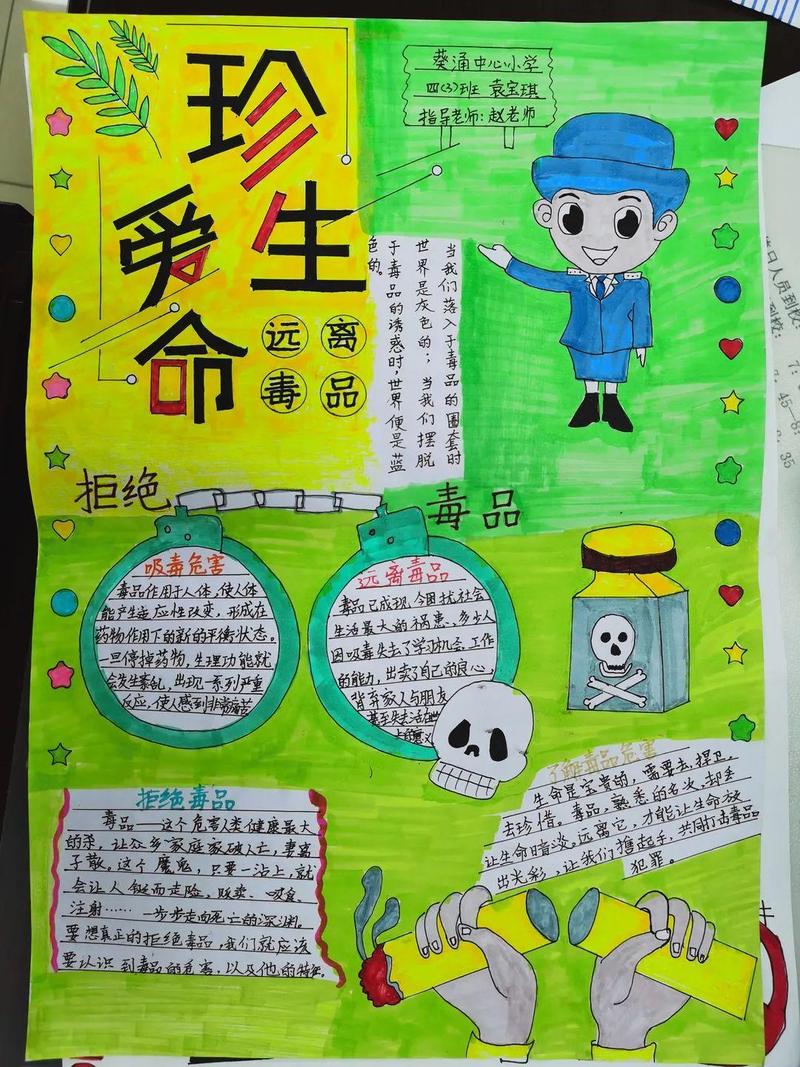 珍
爱
生
命
远离
毒品
葵涌中心小学
四(3)班 袁宝琪
指导老师:赵老师
当我们落入于毒品的圈套时
世界是灰色的；当我们摆脱
于毒品的诱惑时,世界便是蓝
色的。
拒绝 毒品
吸毒危害
毒品作用于人体,使人体
能产生适应性改变,形成在
药物作用下的新的平衡状态。
一旦停掉药物,生理功能就
会发生紊乱,出现一系列严重
反应,使人感到非常痛苦
远离毒品
毒品已成现今困扰社会
生活最大的祸患、多少人
因吸毒失去了学习机会,工作
的能力,出卖了自己的良心,
背弃家人与朋友
甚至失去活在世
上的意义
了解毒品危害
生命是宝贵的,需要去,捍卫,
去珍惜。毒品,熟悉的名次,却
让生命暗淡。远离它,才能让生命放
出光彩,让我们携起手,共同打击毒品
犯罪。
拒绝毒品
毒品——这个危害人类健康最大
的杀,让众多家庭家破人亡,妻离
子散。这个魔鬼,只要一沾上,就
会让人铤而走险。贩卖、吸食、
注射……一步步走向死亡的深渊。
要想真正的拒绝毒品,我们就应该
要认识到毒品的危害,以及他的特征.
人员到校
到校:
7:
7:45—8:
35